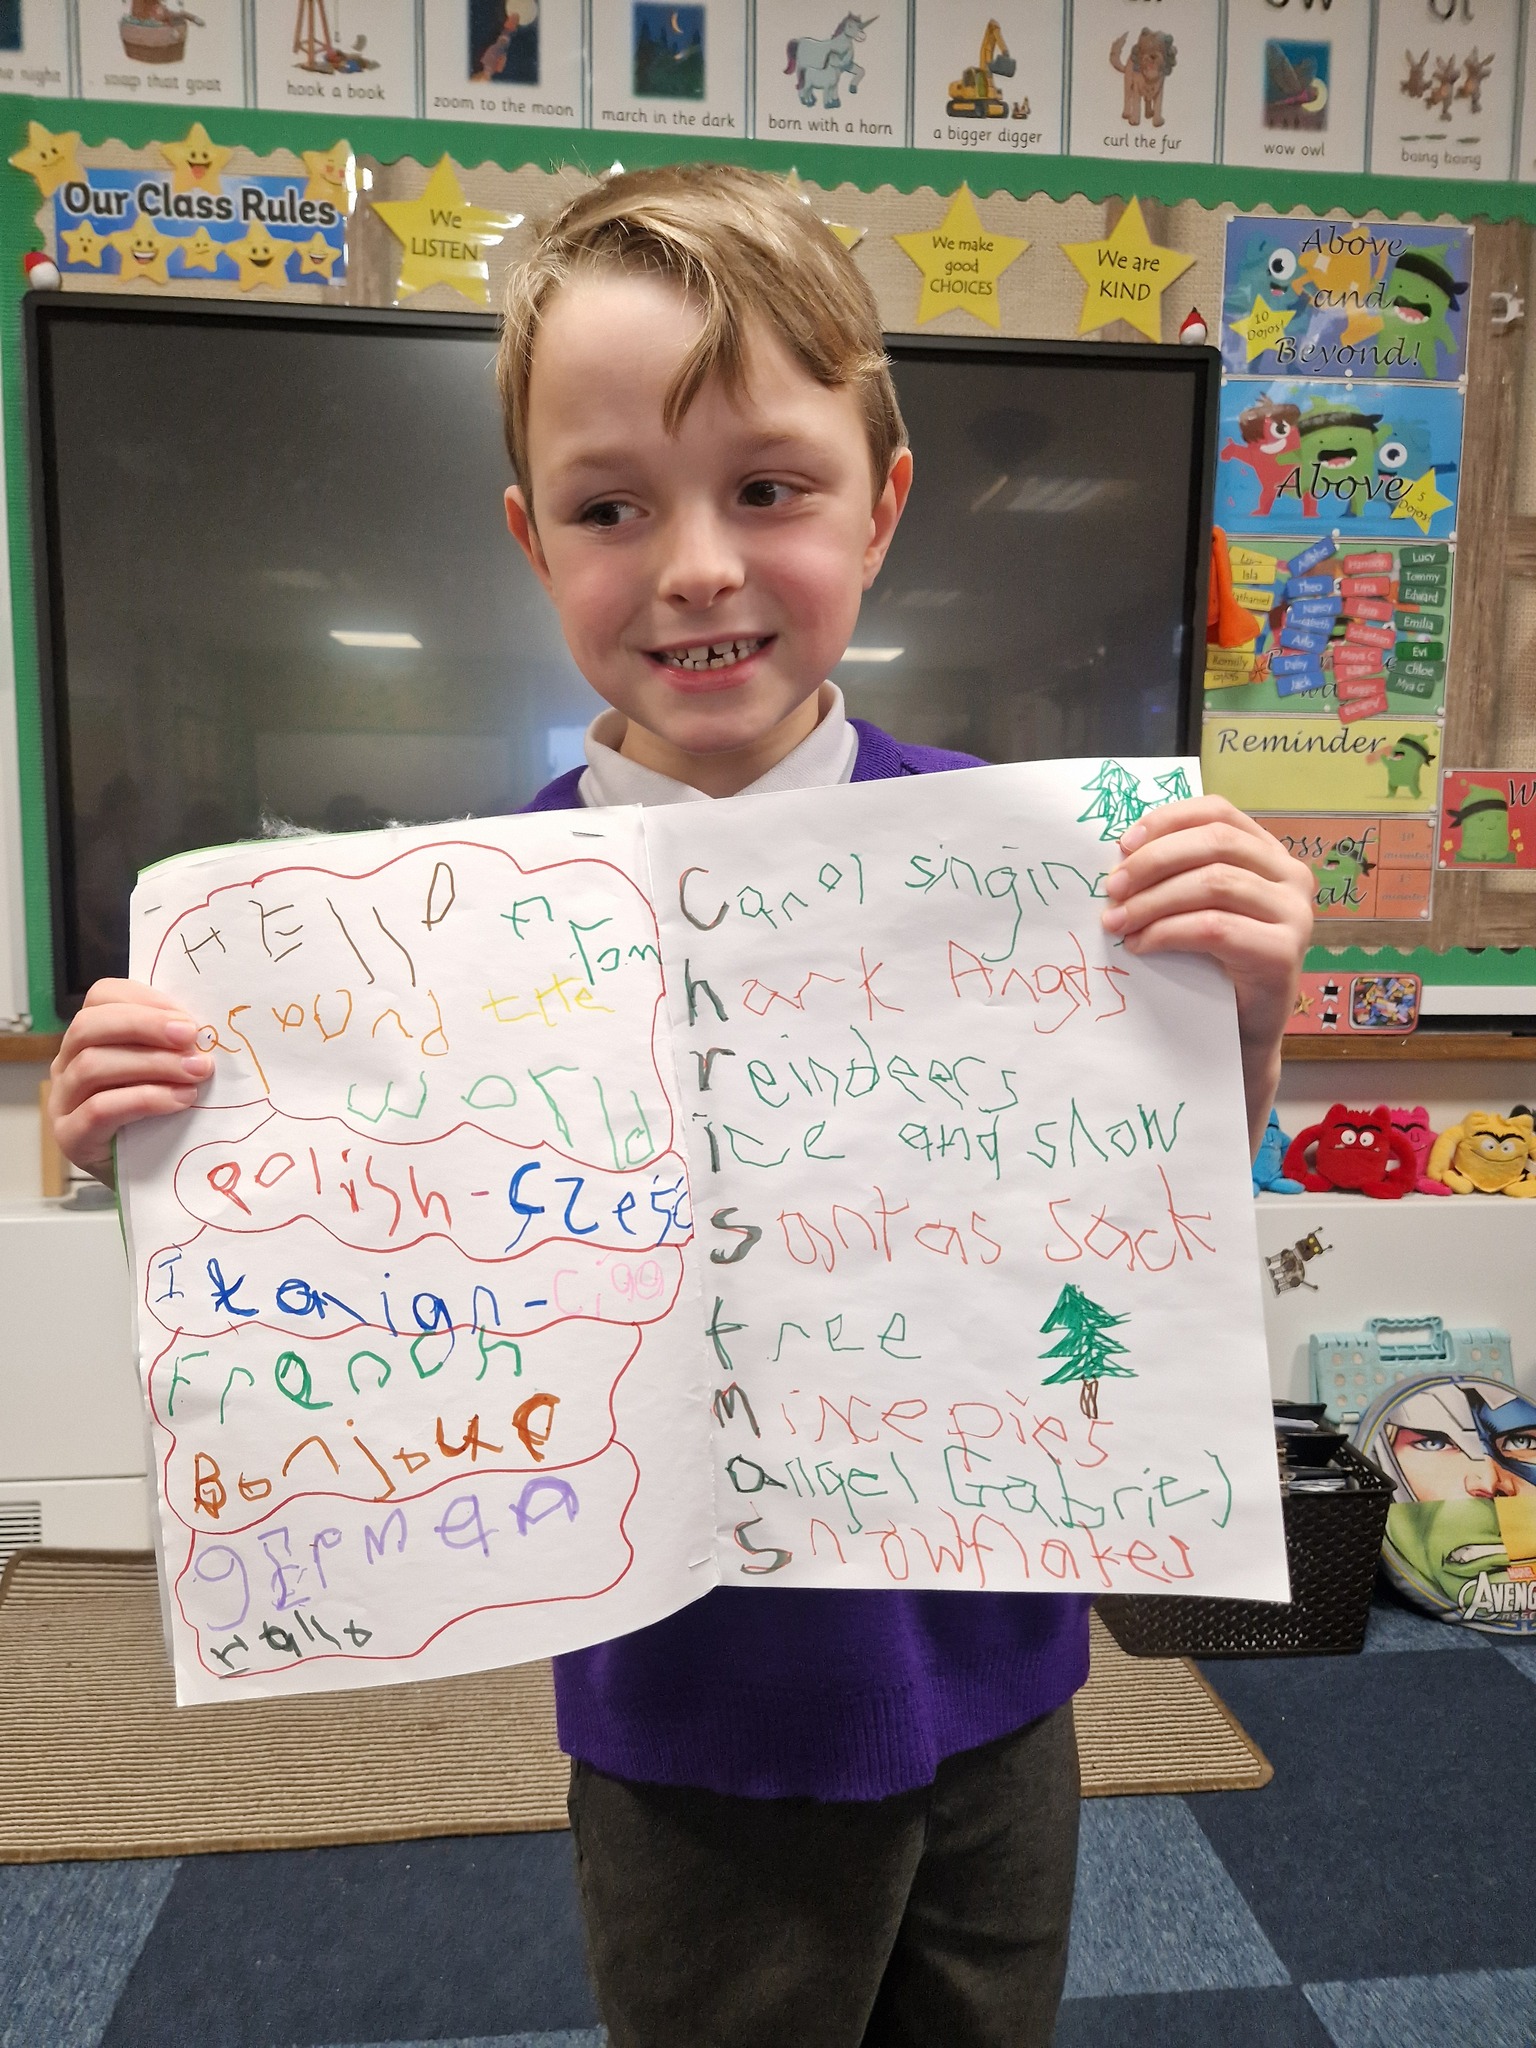 soap that goat
hook a book
zoom to the moon
march in the dark
born with a horn
a bigger digger
curl the fur
wow owl
boing boing
Our Class Rules
We
LISTEN
We make
good
CHOICES
We are
KIND
Above
and
Beyond!
10
Dojos!
Above
5
Dojos!
Isla
Theo
Nancy
Arlo
Daisy
Jack
Lucy
Tommy
Edward
Emilia
Evi
Chloe
Mya G
Reminder
HEllo
from
around the
world
polish - czesć
Itanian - Ciao
French
Bonjour
gErman
hallo
Carol singing
hark Angels
reindeers
ice and snow
santas sack
tree
Mixepies
angel Gabriel
Snowflakes